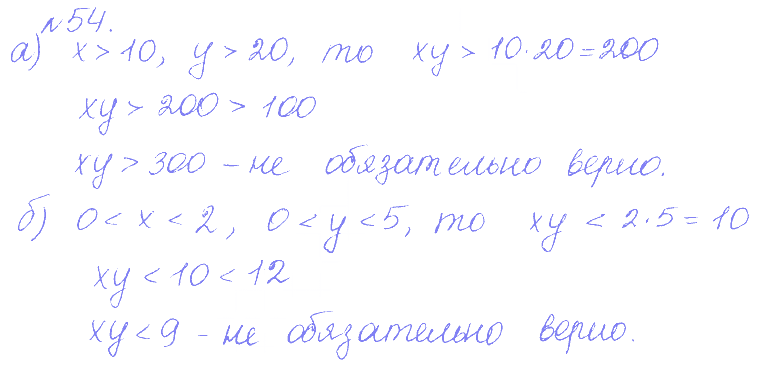 №54.
а) x > 10, y > 20, то xy > 10·20 = 200
xy > 200 > 100
xy > 300 – не обязательно верно.
б) 0 < x < 2, 0 < y < 5, то xy < 2·5 = 10
xy < 10 < 12
xy < 9 – не обязательно верно.